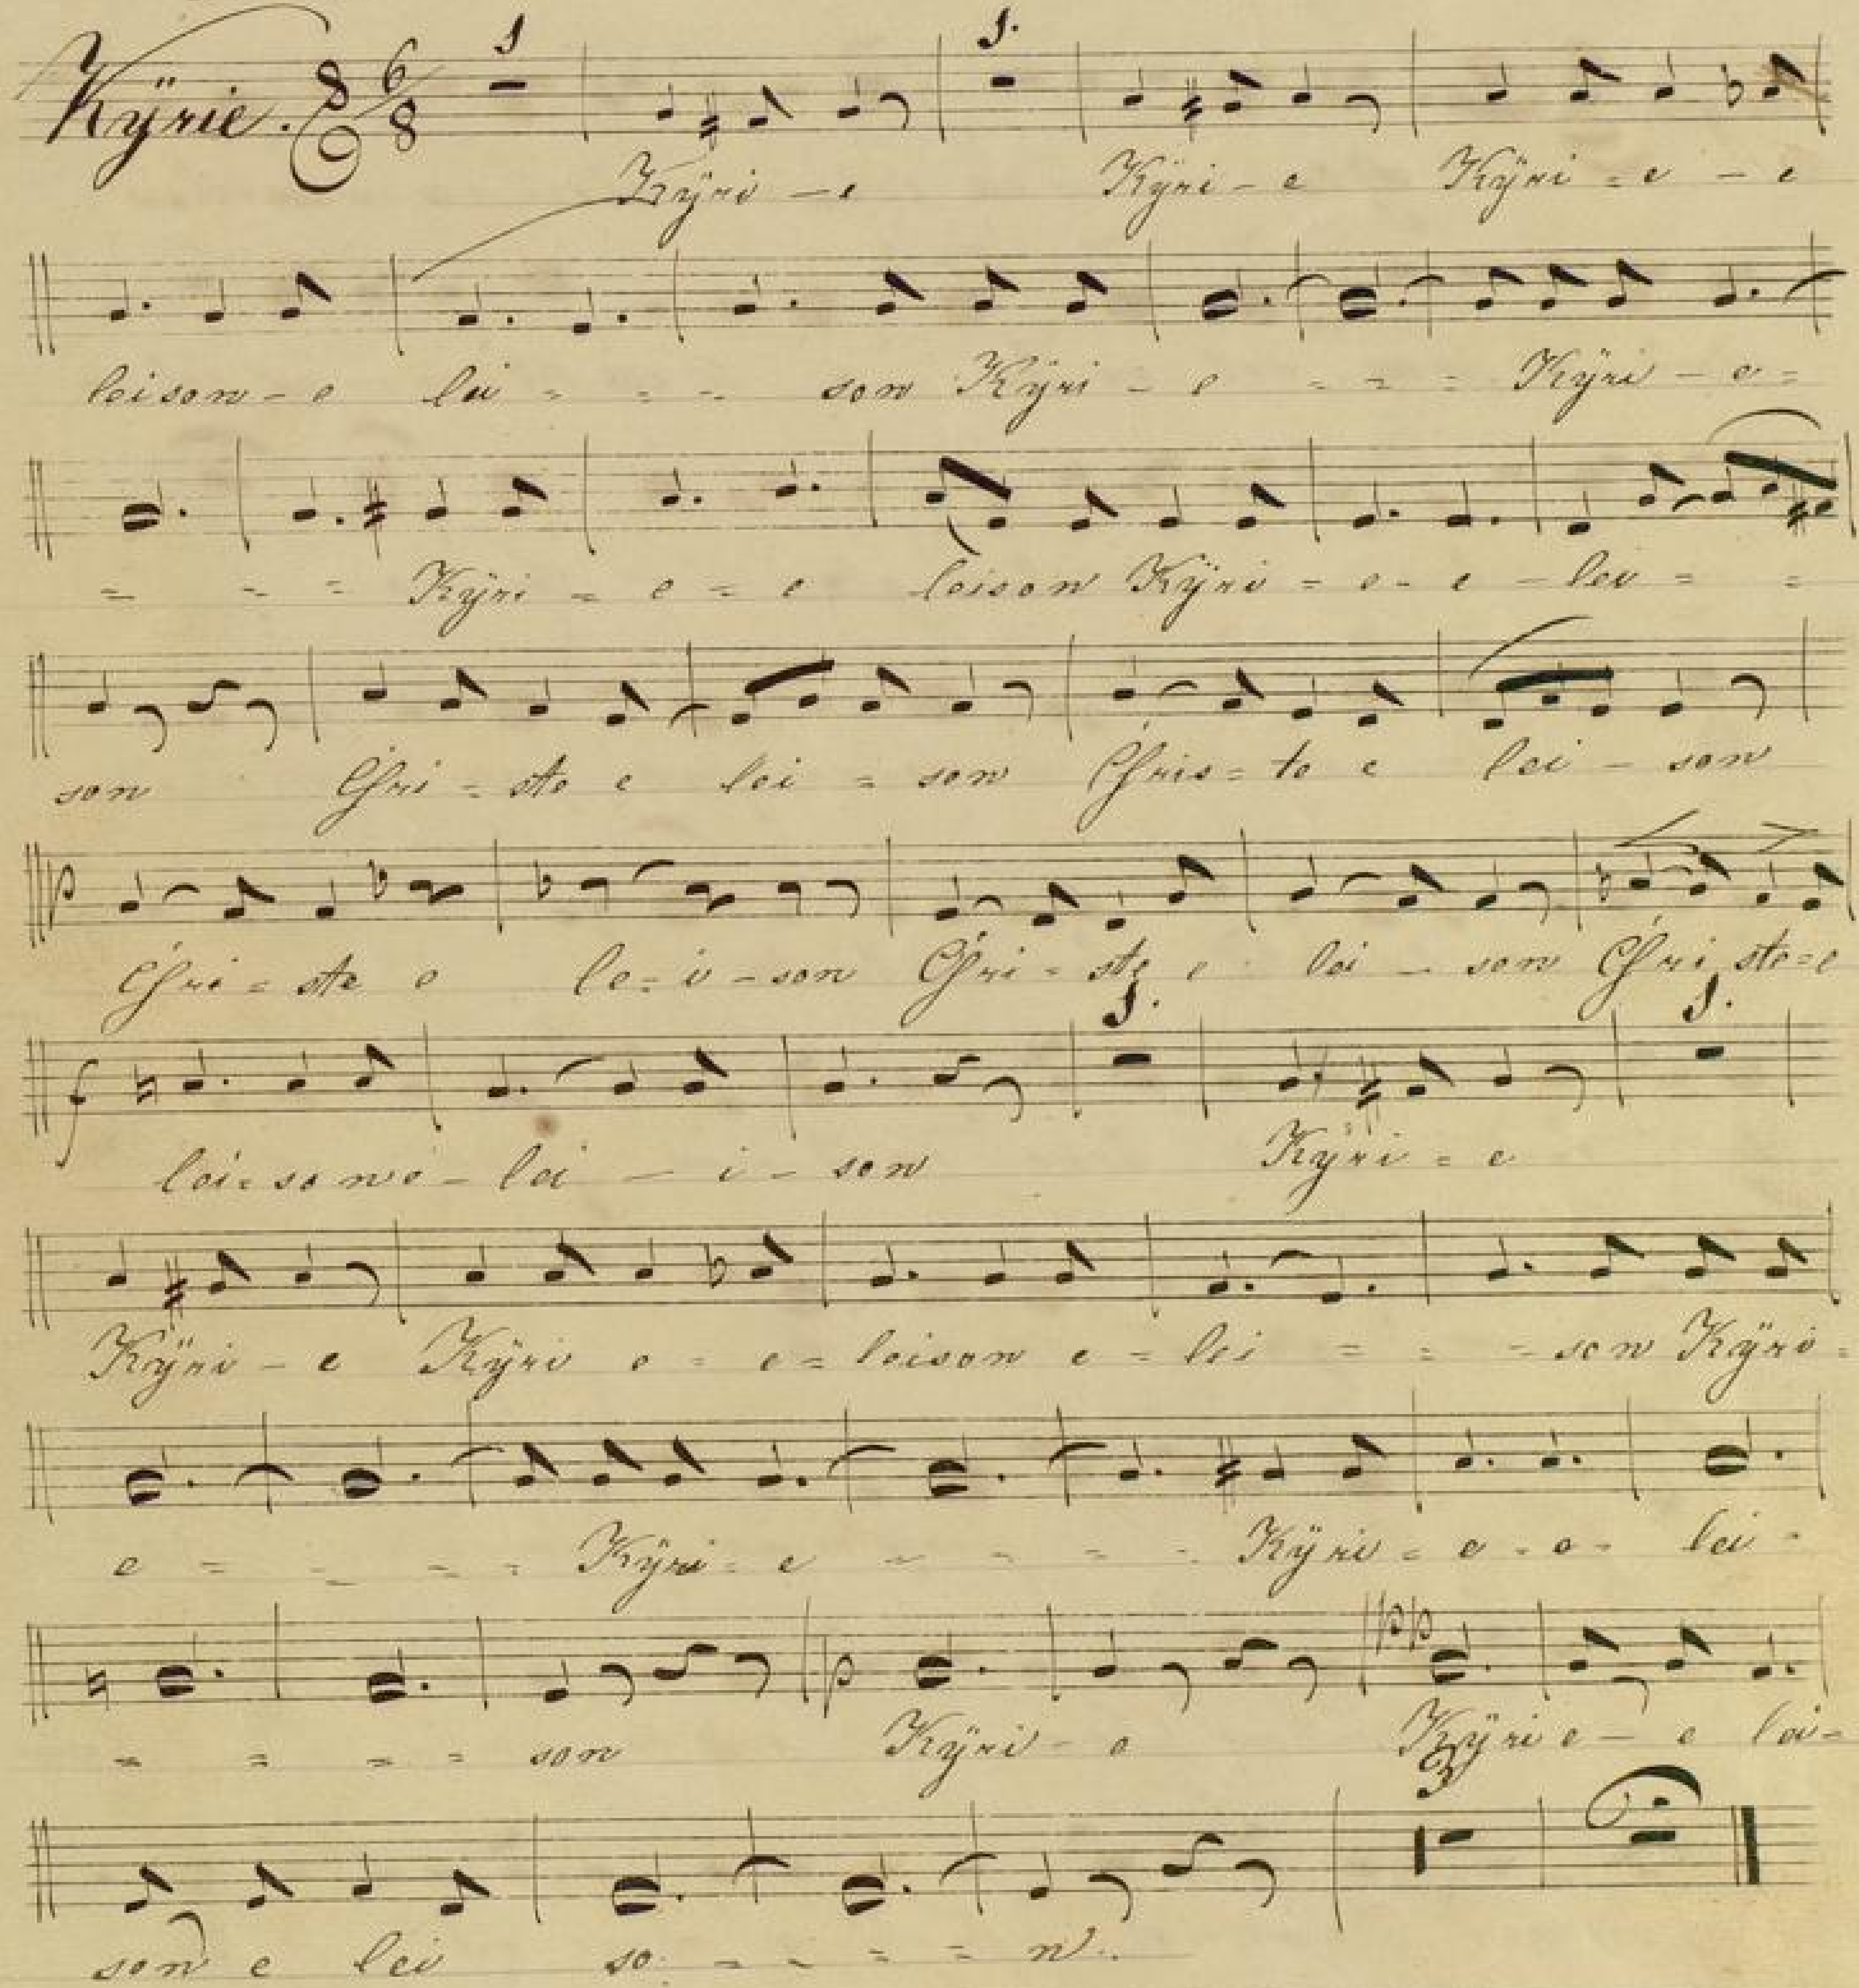 Kÿrie. 6/8 1 1.
Kÿri - e Kÿri - e Kÿri = e - e
leison - e lei = = = son Kÿri - e = = = Kÿri - e =
= = = Kÿri = e = e leison Kÿri = e - e - lei = =
son Chri = ste e lei = son Chris = te e lei - son
p
Chri = ste e le = i - son Chri = ste e lei - son Chri ste = e
f 1. 1.
lei = son e - lei - i - son Kÿri = e
Kÿri - e Kÿri e = e = leison e = lei = = = son Kÿri =
e = = = = Kÿri = e = = = = Kÿri = e - e - lei =
p pp
= = = = son Kÿri - e Kÿrie - e lei =
3
son e lei so = = = = n.